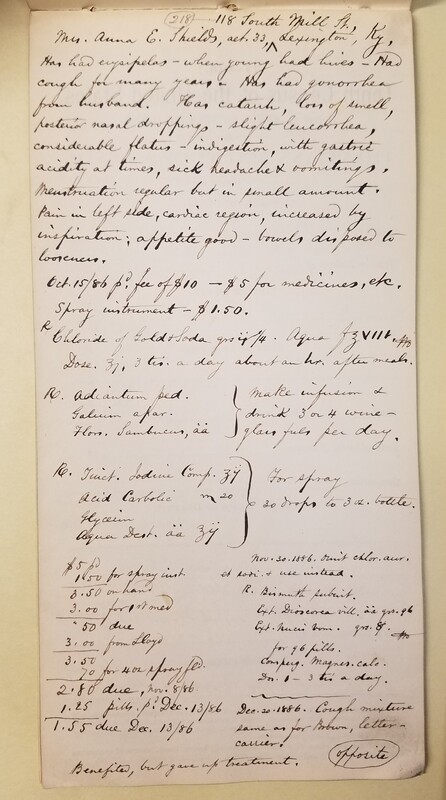 (218) 118 South Mill St.
Mrs. Anna E. Shields, aet. 33, ^ Lexington, Ky.
Has had erysipelas – when young had hives – Had
cough for many years – Has had gonorrhea
from husband. Has catarrh, loss of smell,
posterior nasal droppings – slight leucorrhea,
considerable flatus – indigestion, with gastric
acidity at times, sick headache & vomitings.
Menstruation regular but in small amount.
Pain in left side, cardiac region, increased by
inspiration; appetite good – bowels disposed to
looseness.
Oct. 15/86 pd. fee of $10 – $5 for medicines, etc.
Spray instrument – $1.50.
R Chloride of Gold & Soda grs ij ¼. Aqua f ℥ VIII.
Dose. ʒj, 3 tis. a day about an hr. after meals.
R. Adiantum ped.
Galium apar.
Flors. Sambucus, āā
Make infusion &
drink 3 or 4 wine-
glass fuls per day.
R. Tinct. Iodine Comp. ʒij
Acid Carbolic ♏ 20
Glycerin
Aqua Dest. āā ʒij
For spray
20 drops to 3 oz. bottle.
$5 pd
1.50 for spray inst.
3.50 on hand
3.00 for
.50 due
3.00 from Lloyd
3.50
70 for 4 oz spray
2.80 due, Nov. 8/86
1.25 pills. pd. Dec. 13/86
1.55 due Dec. 13/86
Nov. 30. 1886. Omit chlor. aur.
et sodi. & use instead.
R. Bismuth subnit.
Ext. Dioscorea vill. āā grs. 96
Ext. Nucis vom. grs. 8.
for 96 pills.
Consperg. Magnes. calc.
Ds. 1 – 3 tis a day.
Dec. 20. 1886. Cough mixture
same as for Brown, letter-
carrier.
(opposite)
Benefited, but gave up treatment.